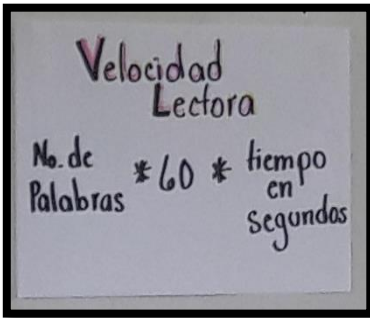 Velocidad
Lectora
No. de
Palabras
* 60 *
tiempo
en
segundos